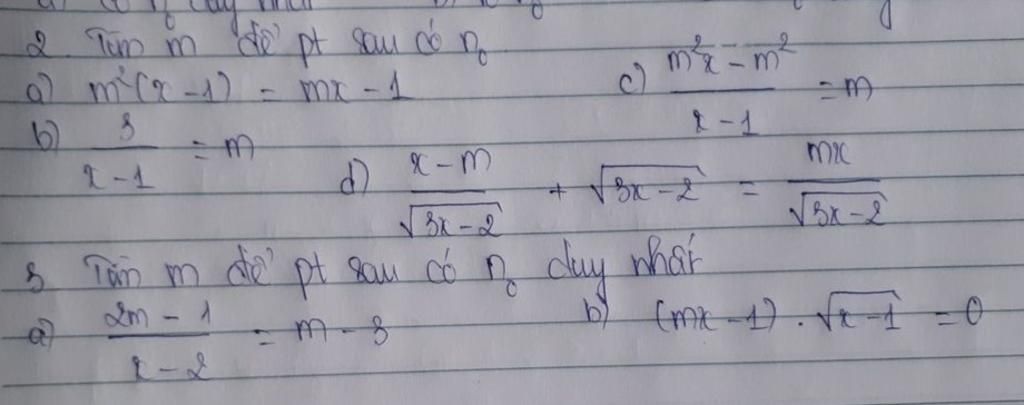 a) có n₀ duy nhất
2. Tìm m để pt sau có n₀
a) m²(x – 1) = mx – 1
c) (m²x – m²)/(x – 1) = m
b) 3/(x – 1) = m
d) (x – m)/√(3x – 2) + √(3x – 2) = mx/√(3x – 2)
3 Tìm m để pt sau có n₀ duy nhất
a) (2m – 1)/(x – 2) = m – 3
b) (mx – 1) . √(x – 1) = 0